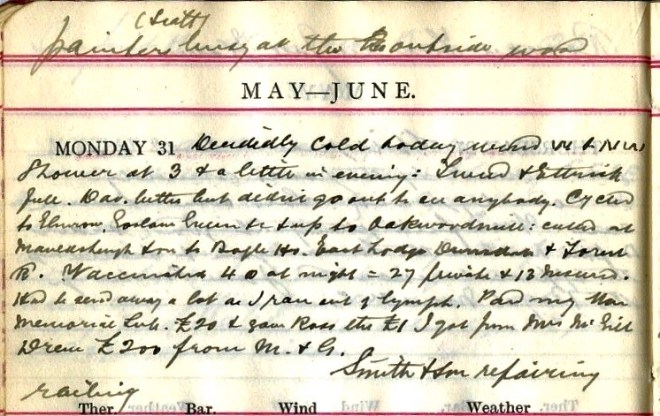 (Scott)
painter busy at the outside work
MAY—JUNE.
MONDAY 31 Decidedly cold today wind W & NW
Shower at 3 & a little in evening: Tweed & Ettrick
full. Dav. better but didn't go out to see anybody. Cycled
to Elmrow, Green & up to Oakwoodmill: called at
& on to Ho. East Lodge & Forest
R. Vaccinated 40 at night = 27 & 13 Insured.
Had to send away a lot as I ran out of lymph. Paid my War
Memorial Sub. £20 & gave Ross the £1 I got from Mrs
Drew £200 from M. & G.
Smith & Son repairing
railing
Ther. Bar. Wind Weather